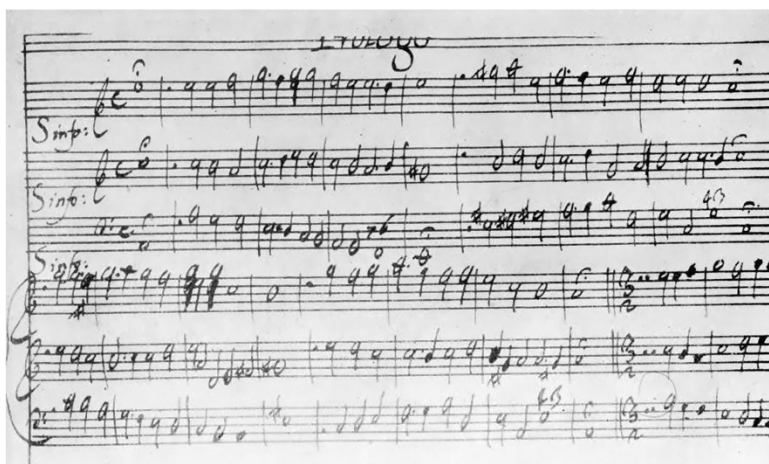 Prologo
Sinfo:
Sinfo:
Sinfo: